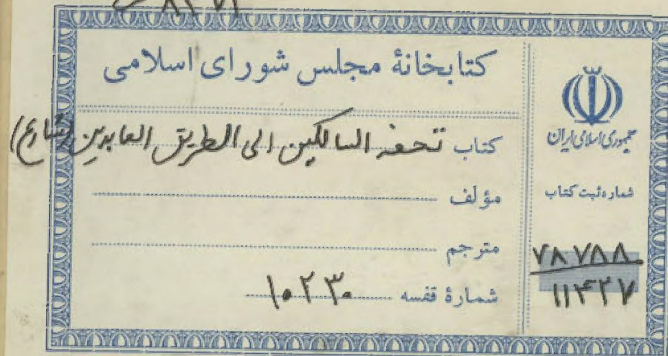 ۸۲۷۱
کتابخانهٔ مجلس شورای اسلامی
کتاب تحفه السالکین الی الطریق العابدین (شارع)
مؤلف
مترجم
شمارهٔ قفسه ۱۰۲۳۰
جمهوری اسلامی ایران
شماره ثبت کتاب
۷۸۷۸۸
۱۱۴۲۷